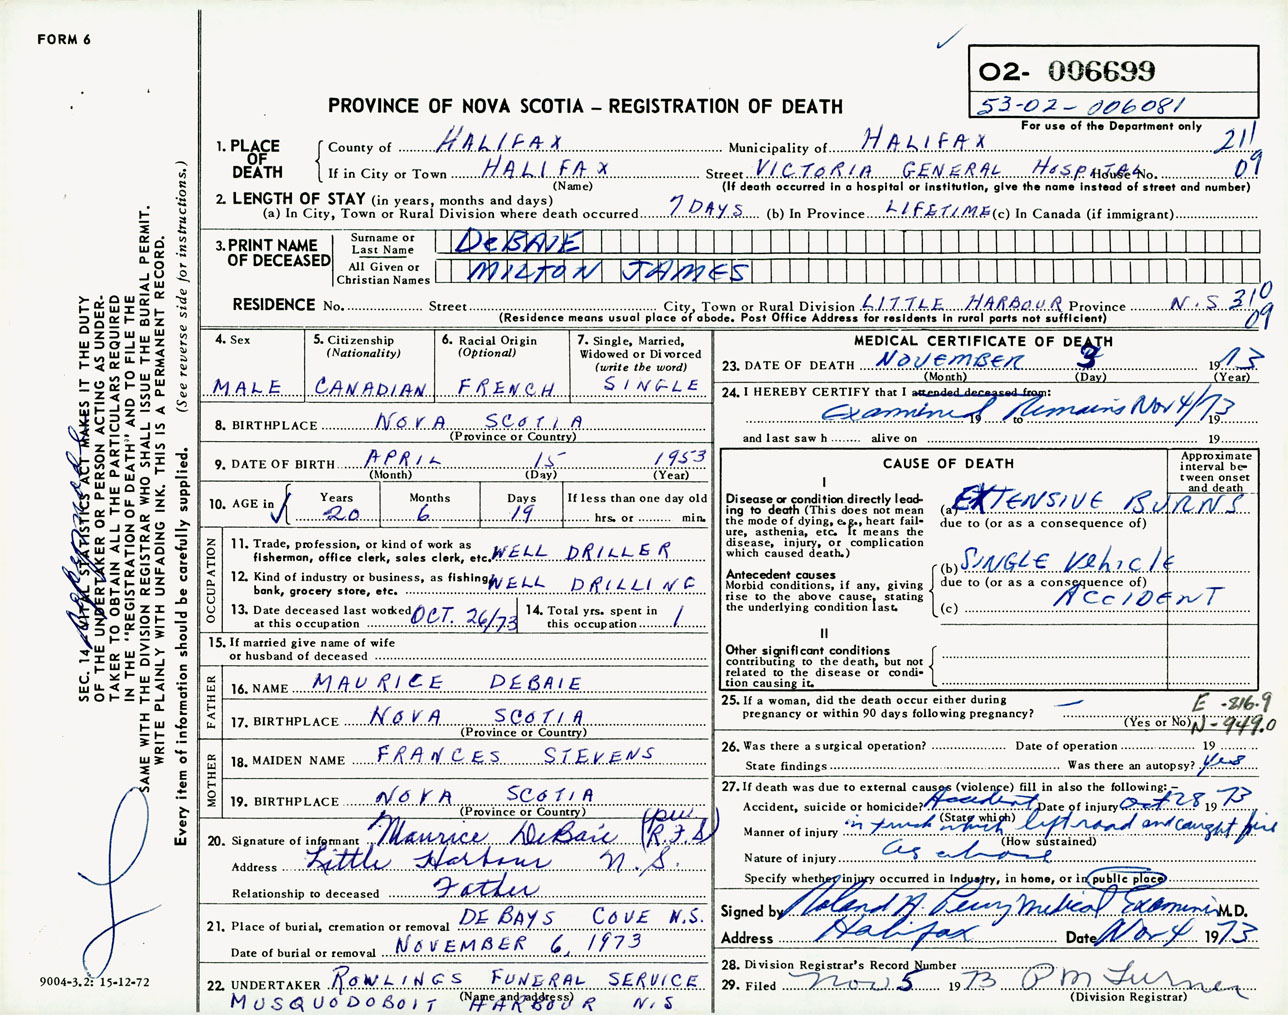 FORM 6
02- 006699
53-02-006081
For use of the Department only
PROVINCE OF NOVA SCOTIA – REGISTRATION OF DEATH
211
09
1. PLACE OF DEATH
County of HALIFAX Municipality of HALIFAX
If in City or Town HALIFAX Street VICTORIA GENERAL HOSPITAL House No.
(Name) (If death occurred in a hospital or institution, give the name instead of street and number)
2. LENGTH OF STAY (in years, months and days)
(a) In City, Town or Rural Division where death occurred 7 DAYS (b) In Province LIFETIME (c) In Canada (if immigrant)
3. PRINT NAME OF DECEASED
Surname or Last Name DeBAIE
All Given or Christian Names MILTON JAMES
RESIDENCE No. Street City, Town or Rural Division LITTLE HARBOUR Province N.S 310
09
(Residence means usual place of abode. Post Office Address for residents in rural parts not sufficient)
4. Sex MALE
5. Citizenship (Nationality) CANADIAN
6. Racial Origin (Optional) FRENCH
7. Single, Married, Widowed or Divorced (write the word) SINGLE
8. BIRTHPLACE NOVA SCOTIA
(Province or Country)
9. DATE OF BIRTH APRIL 15 1953
(Month) (Day) (Year)
10. AGE in Years 20 Months 6 Days 19 If less than one day old hrs. or min.
OCCUPATION
11. Trade, profession, or kind of work as fisherman, office clerk, sales clerk, etc. WELL DRILLER
12. Kind of industry or business, as fishing, bank, grocery store, etc. WELL DRILLING
13. Date deceased last worked at this occupation OCT. 26/73
14. Total yrs. spent in this occupation 1
15. If married give name of wife or husband of deceased
FATHER
16. NAME MAURICE DEBAIE
17. BIRTHPLACE NOVA SCOTIA
(Province or Country)
MOTHER
18. MAIDEN NAME FRANCES STEVENS
19. BIRTHPLACE NOVA SCOTIA
(Province or Country)
20. Signature of informant Maurice DeBaie (per R.F.S)
Address Little Harbour N.S.
Relationship to deceased Father
21. Place of burial, cremation or removal DE BAYS COVE N.S.
Date of burial or removal NOVEMBER 6, 1973
22. UNDERTAKER ROWLINGS FUNERAL SERVICE
(Name and address)
MUSQUODOBOIT HARBOUR N.S
MEDICAL CERTIFICATE OF DEATH
23. DATE OF DEATH NOVEMBER 3 1973
(Month) (Day) (Year)
24. I HEREBY CERTIFY that I attended deceased from:
Examined Remains Nov 4/73 19 to 19
and last saw h alive on 19
CAUSE OF DEATH
Approximate interval between onset and death
I
Disease or condition directly leading to death (This does not mean the mode of dying, e.g., heart failure, asthenia, etc. It means the disease, injury, or complication which caused death.)
(a) EXTENSIVE BURNS
due to (or as a consequence of)
Antecedent causes
Morbid conditions, if any, giving rise to the above cause, stating the underlying condition last.
(b) SINGLE VEHICLE
due to (or as a consequence of)
(c) ACCIDENT
II
Other significant conditions contributing to the death, but not related to the disease or condition causing it.
25. If a woman, did the death occur either during pregnancy or within 90 days following pregnancy? —
(Yes or No)
E -816.9
N-949.0
26. Was there a surgical operation? Date of operation 19
State findings Was there an autopsy? yes
27. If death was due to external causes (violence) fill in also the following: –
Accident, suicide or homicide? Accident Date of injury Oct 28 1973
(State which)
Manner of injury in truck which left road and caught fire
(How sustained)
Nature of injury as above
Specify whether injury occurred in Industry, in home, or in public place
Signed by Roland A. Perry Medical Examiner M.D.
Address Halifax Date Nov 4 1973
28. Division Registrar's Record Number
29. Filed Nov 5 1973 P M Turner
(Division Registrar)
SEC. 14. VITAL STATISTICS ACT MAKES IT THE DUTY
OF THE UNDERTAKER OR PERSON ACTING AS UNDER-
TAKER TO OBTAIN ALL THE PARTICULARS REQUIRED
IN THE "REGISTRATION OF DEATH" AND TO FILE THE
SAME WITH THE DIVISION REGISTRAR WHO SHALL ISSUE THE BURIAL PERMIT.
WRITE PLAINLY WITH UNFADING INK. THIS IS A PERMANENT RECORD.
Every item of information should be carefully supplied. (See reverse side for instructions.)
9004-3.2: 15-12-72